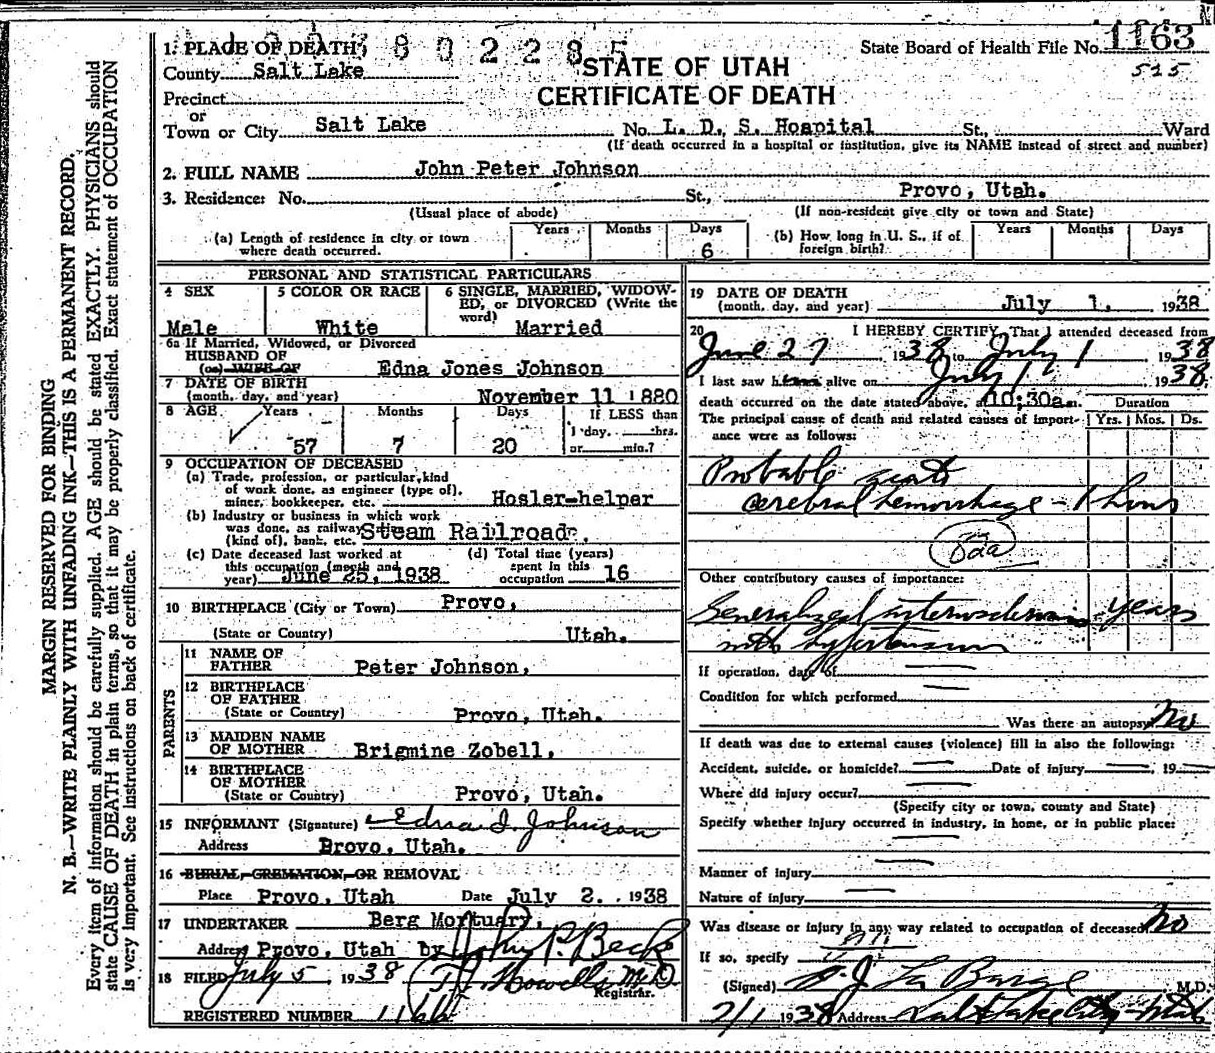 MARGIN RESERVED FOR BINDING
N. B.—WRITE PLAINLY WITH UNFADING INK—THIS IS A PERMANENT RECORD.
Every item of information should be carefully supplied. AGE should be stated EXACTLY. PHYSICIANS should
state CAUSE OF DEATH in plain terms, so that it may be properly classified. Exact statement of OCCUPATION
is very important. See instructions on back of certificate.
State Board of Health File No. 1163
515
1. PLACE OF DEATH
County Salt Lake
STATE OF UTAH
CERTIFICATE OF DEATH
Precinct
or
Town or City Salt Lake No. L. D. S. Hospital St., Ward
(If death occurred in a hospital or institution, give its NAME instead of street and number)
2. FULL NAME John Peter Johnson
3. Residence: No. St., Provo, Utah.
(Usual place of abode) (If non-resident give city or town and State)
(a) Length of residence in city or town where death occurred. Years Months Days 6
(b) How long in U. S., if of foreign birth? Years Months Days
PERSONAL AND STATISTICAL PARTICULARS
4 SEX Male
5 COLOR OR RACE White
6 SINGLE, MARRIED, WIDOWED, or DIVORCED (Write the word) Married
6a If Married, Widowed, or Divorced
HUSBAND OF
(or) WIFE OF Edna Jones Johnson
7 DATE OF BIRTH
(month, day, and year) November 11 1880
8 AGE Years 57 Months 7 Days 20 If LESS than 1 day, hrs. or min.?
9 OCCUPATION OF DECEASED
(a) Trade, profession, or particular kind
of work done, as engineer (type of),
miner, bookkeeper, etc. Hosler-helper
(b) Industry or business in which work
was done, as railway
(kind of), bank, etc. Steam Railroad.
(c) Date deceased last worked at
this occupation (month and
year) June 25, 1938
(d) Total time (years)
spent in this
occupation 16
10 BIRTHPLACE (City or Town) Provo,
(State or Country) Utah.
PARENTS
11 NAME OF
FATHER Peter Johnson,
12 BIRTHPLACE
OF FATHER
(State or Country) Provo, Utah.
13 MAIDEN NAME
OF MOTHER Brigmine Zobell,
14 BIRTHPLACE
OF MOTHER
(State or Country) Provo, Utah.
15 INFORMANT (Signature) Edna J. Johnson
Address Provo, Utah.
16 BURIAL, CREMATION, OR REMOVAL
Place Provo, Utah Date July 2. 1938
17 UNDERTAKER Berg Mortuary,
Address Provo, Utah by John P. Beck
18 FILED July 5, 1938 T. J. Howells M.D.
Registrar.
REGISTERED NUMBER 1166
19 DATE OF DEATH
(month, day, and year) July 1, 1938
20 I HEREBY CERTIFY, That I attended deceased from
June 27, 1938, to July 1 1938
I last saw him alive on July 1 1938.
death occurred on the date stated above, at 10:30a.m.
The principal cause of death and related causes of importance were as follows: Duration Yrs. Mos. Ds.
Probable acute
cerebral hemorrhage - 1 hour
82a
Other contributory causes of importance:
Generalized arteriosclerosis years
with hypertension
If operation, date of
Condition for which performed
Was there an autopsy No
If death was due to external causes (violence) fill in also the following:
Accident, suicide, or homicide? Date of injury , 19
Where did injury occur?
(Specify city or town, county and State)
Specify whether injury occurred in industry, in home, or in public place:
Manner of injury
Nature of injury
Was disease or injury in any way related to occupation of deceased No
If so, specify
(Signed) J. La Barge M.D.
7/1 1938 Address Salt Lake City - Utah